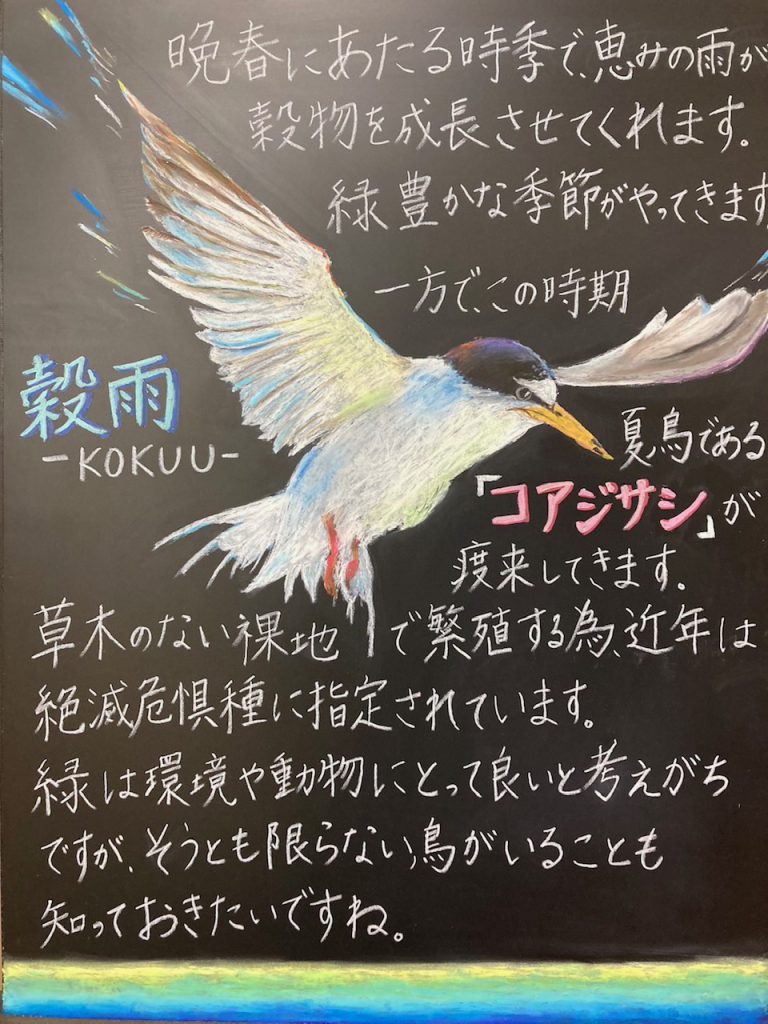 晩春にあたる時季で、恵みの雨が
穀物を成長させてくれます。
緑豊かな季節がやってきます
一方で、この時期
穀雨
-KOKUU-
夏鳥である
「コアジサシ」が
度来してきます。
草木のない裸地で繁殖する為、近年は
絶滅危惧種に指定されています。
緑は環境や動物にとって良いと考えがち
ですが、そうとも限らない鳥がいることも
知っておきたいですね。